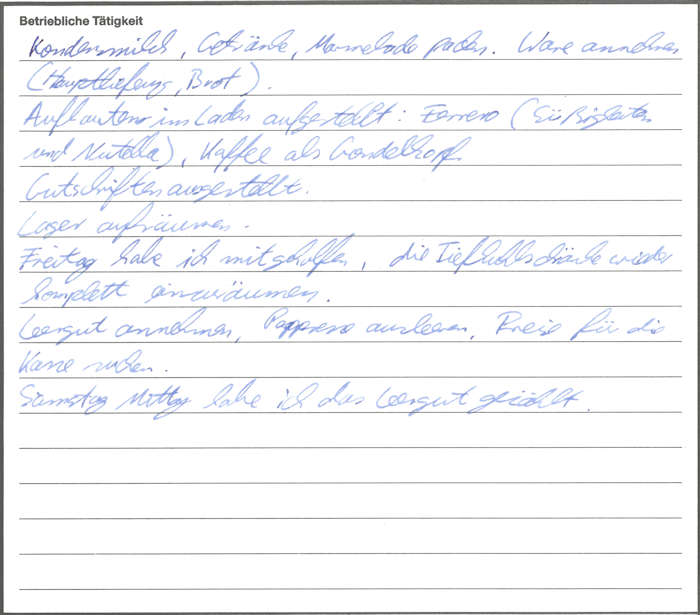 Betriebliche Tätigkeit
Kondensmilch, Getränke, Marmelade packen. Ware annehmen
(Hauptlieferung, Brot).
Aufbauten im Laden aufgestellt: Ferrero (Süßigkeiten
und Nutella), Kaffee als Gondelkopf.
Gutschriften ausgestellt.
Lager aufräumen.
Freitag habe ich mitgeholfen, die Tiefkühlschränke wieder
komplett einzuräumen.
Leergut annehmen, ausleeren, Preise für die
Kasse
Samstag Mittag habe ich das Leergut gezählt.